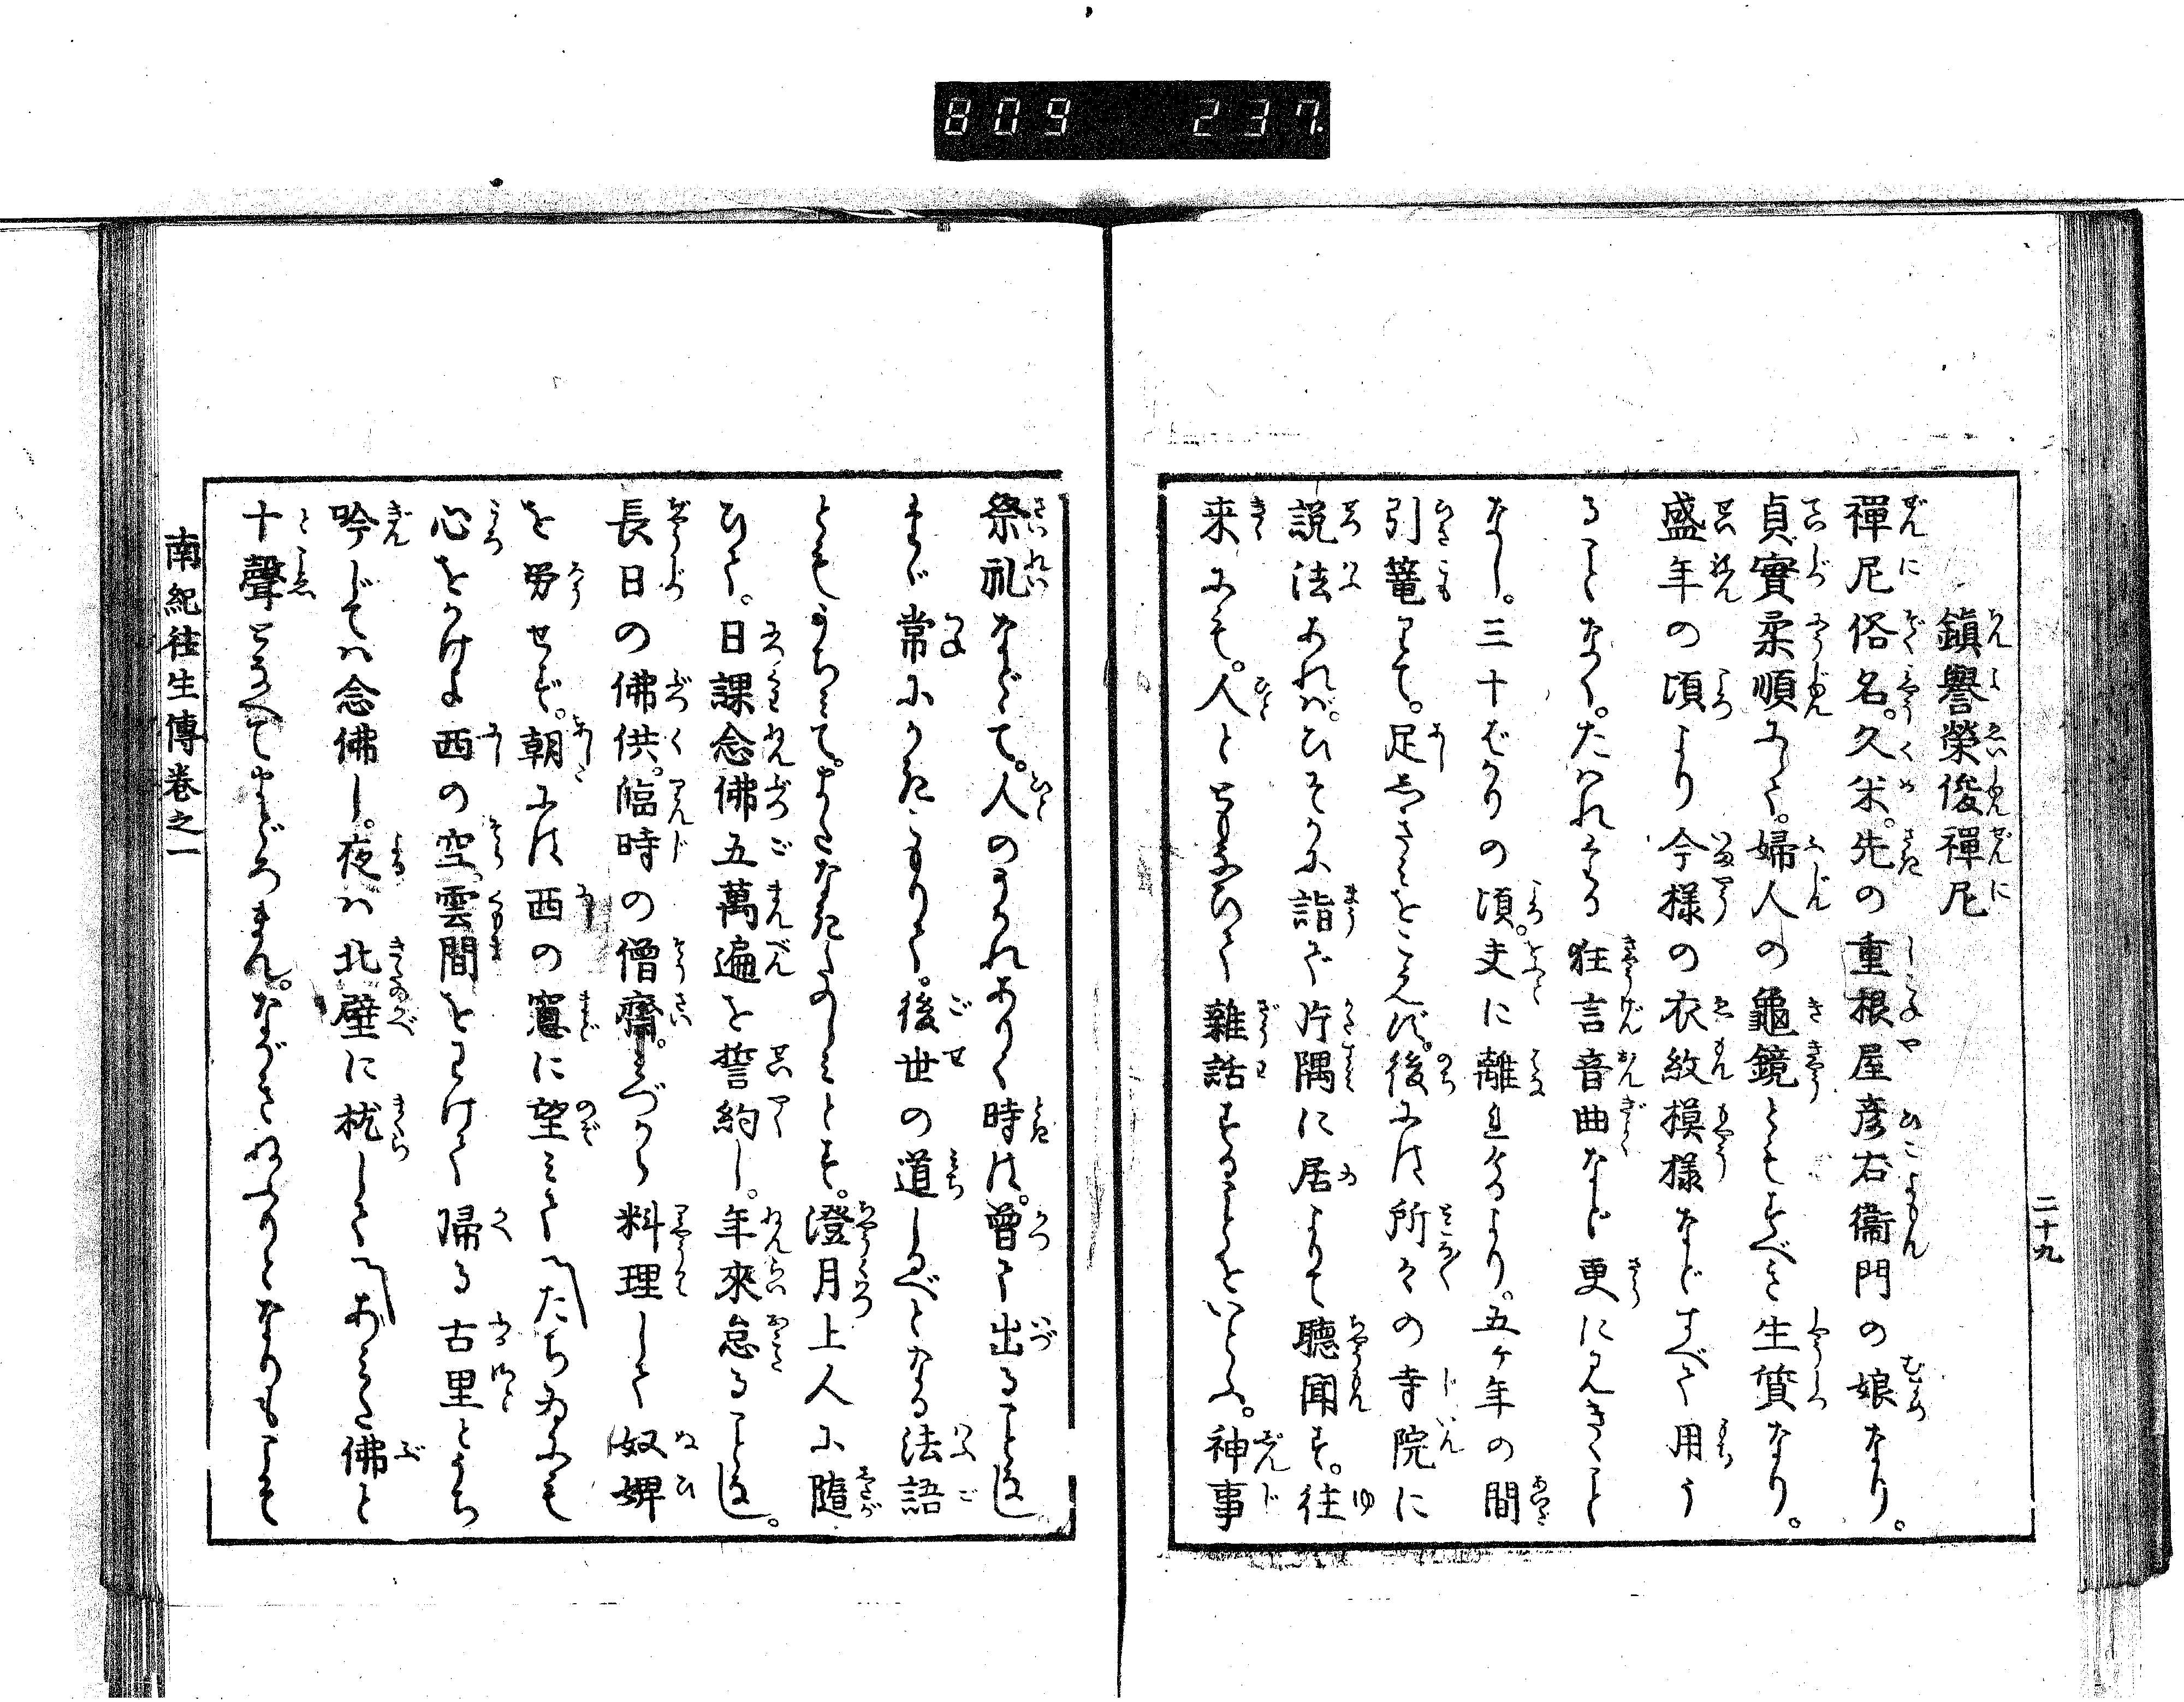 809 237.
二十九
鎭譽榮俊禪尼
禪尼俗名。久米。先の重根屋彦右衞門の娘なり。
貞實柔順にして。婦人の龜鏡ともすべき生質なり。
盛年の頃より今様の衣紋模様などすべて用う
ることなく。たはれたる狂言音曲など更に見きくこと
なし。三十ばかりの頃。夫に離れけるより。五ケ年の間
引篭りて。足しきみをこえず。後には所々の寺院に
説法あれば。ひそかに詣で片隅に居よりて聽聞す。往
来にも。人と ひて雜話することをいとふ。神事
祭礼などて。人のうかれありく時は。曾て出ることなし
まが常にかたへ りて。後世の道しるべとなる法語
ともうちミて。またなきたのしミとす。澄月上人に隨
ひて。日課念佛五萬遍を誓約し。年來怠ることなし。
長日の佛供。臨時の僧齋。ミづから料理して奴婢
を労せず。朝には西の窓に望ミて〽たちゐにも
心をかけよ西の空雲間をわけて帰る古里とうち
吟じてハ念佛し。夜ハ北壁に枕して〽あミだ佛と
十聲となへてまどろまん。ながきねふりとなりもこそ
南紀往生傳巻之一